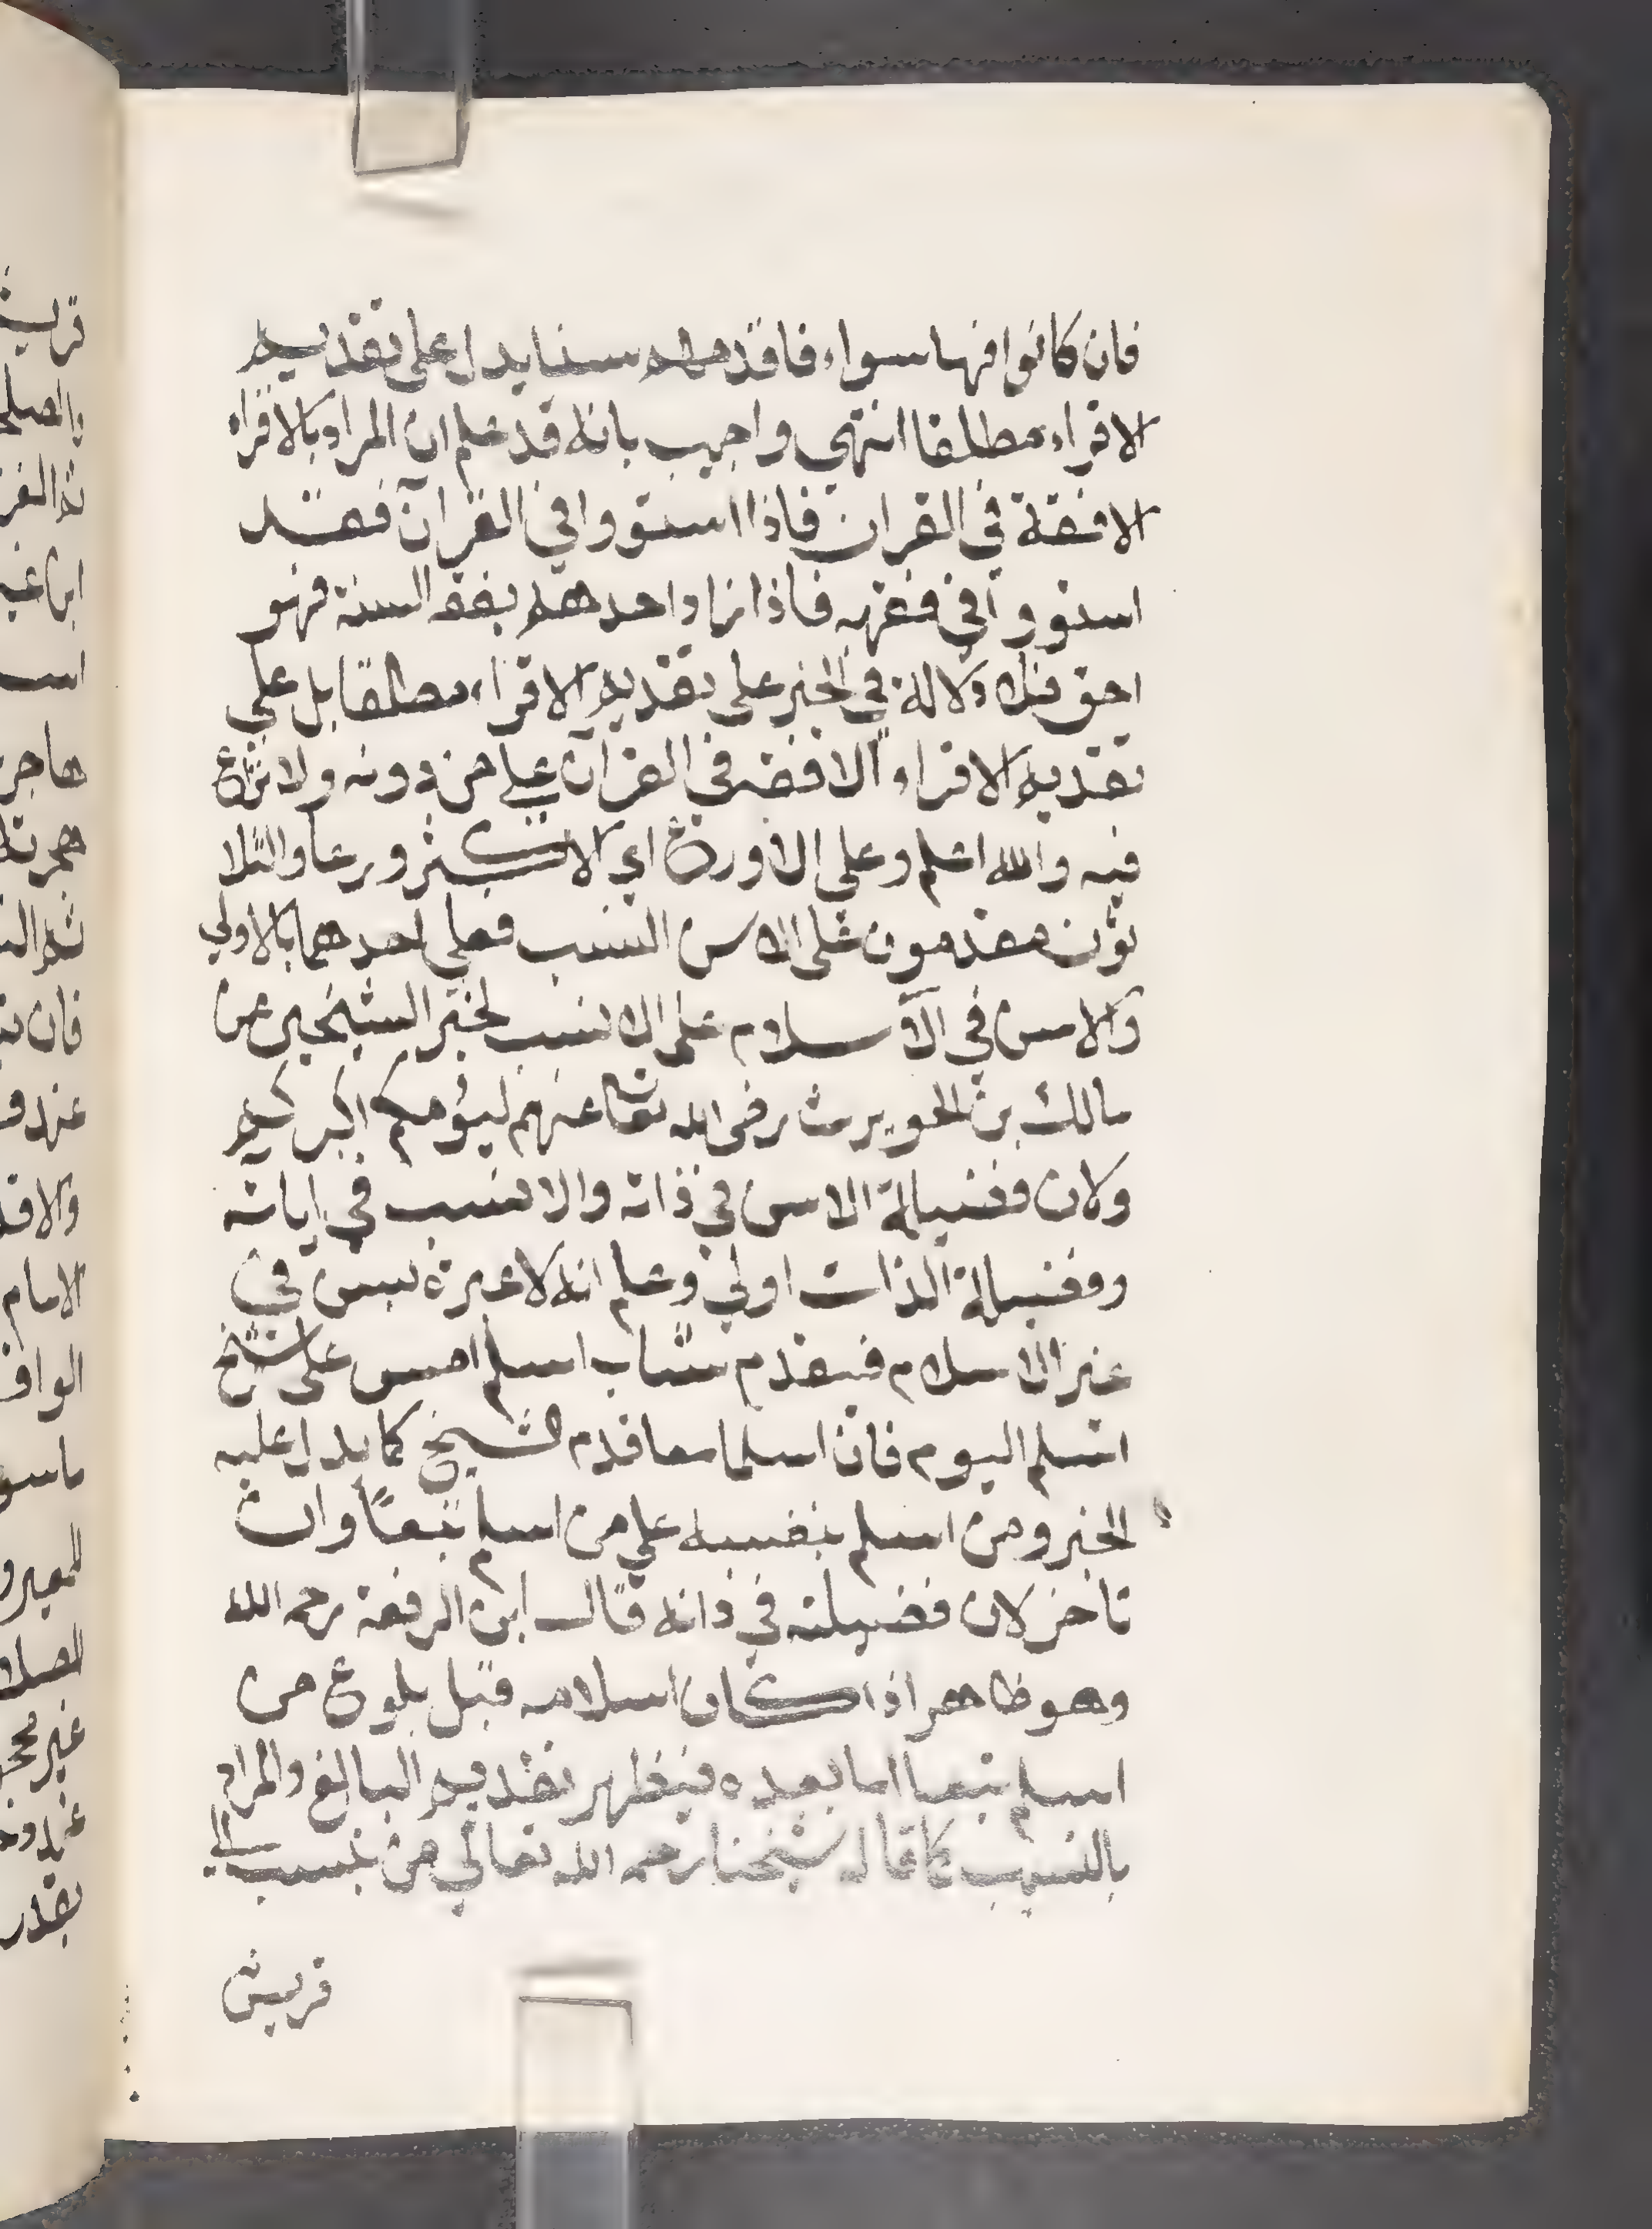 فان كانوا فيها سواء فاقدمهم سنا يدل على تقديم
الاقراء مطلقا انتهى واجيب بانه قد علم ان المراد بالاقراء
الافقة في القران فاذا استووا في القرآن فقد
استووا في فقهه فاذا زاد احدهم بفقه السنة فهو
احق فلا دلالة في الخبر على تقديم الاقراء مطلقا بل على
تقديم الاقراء الافقه في القرآن على من دونه ولا نزاع
فيه والله اعلم وعلى الاورع اي الاكثر ورعا والثلا
ثون مقدمون على الاسن النسب فعلى احدهما بالاولى
والاسن في الاسلام على الانسب لخبر الشيخين عن
مالك بن الحويرث رضى الله تعا عنهم ليؤمكم اكبركم
ولان فضيلة الاسن في ذاته والانسب في ابائه
وفضيلة الذات اولى وعلم انه لا عبرة بسن في
غير الاسلام فيقدم شاب اسلم امس على شيخ
اسلم اليوم فان اسلما معا قدم الشيخ كما يدل عليه
الخبر ومن اسلم بنفسه على من اسلم تبعاً وان
تاخر لان فضيلته في ذاته قال ابن الرفعة رحمه الله
وهو ظاهر اذا كان اسلامه قبل بلوغ من
اسلم تبعا اما بعده فيظهر تقديم البالغ والمراد
بالنسب كما قاله شيخنا رحمه الله تعالى من ينسب الى
قريش